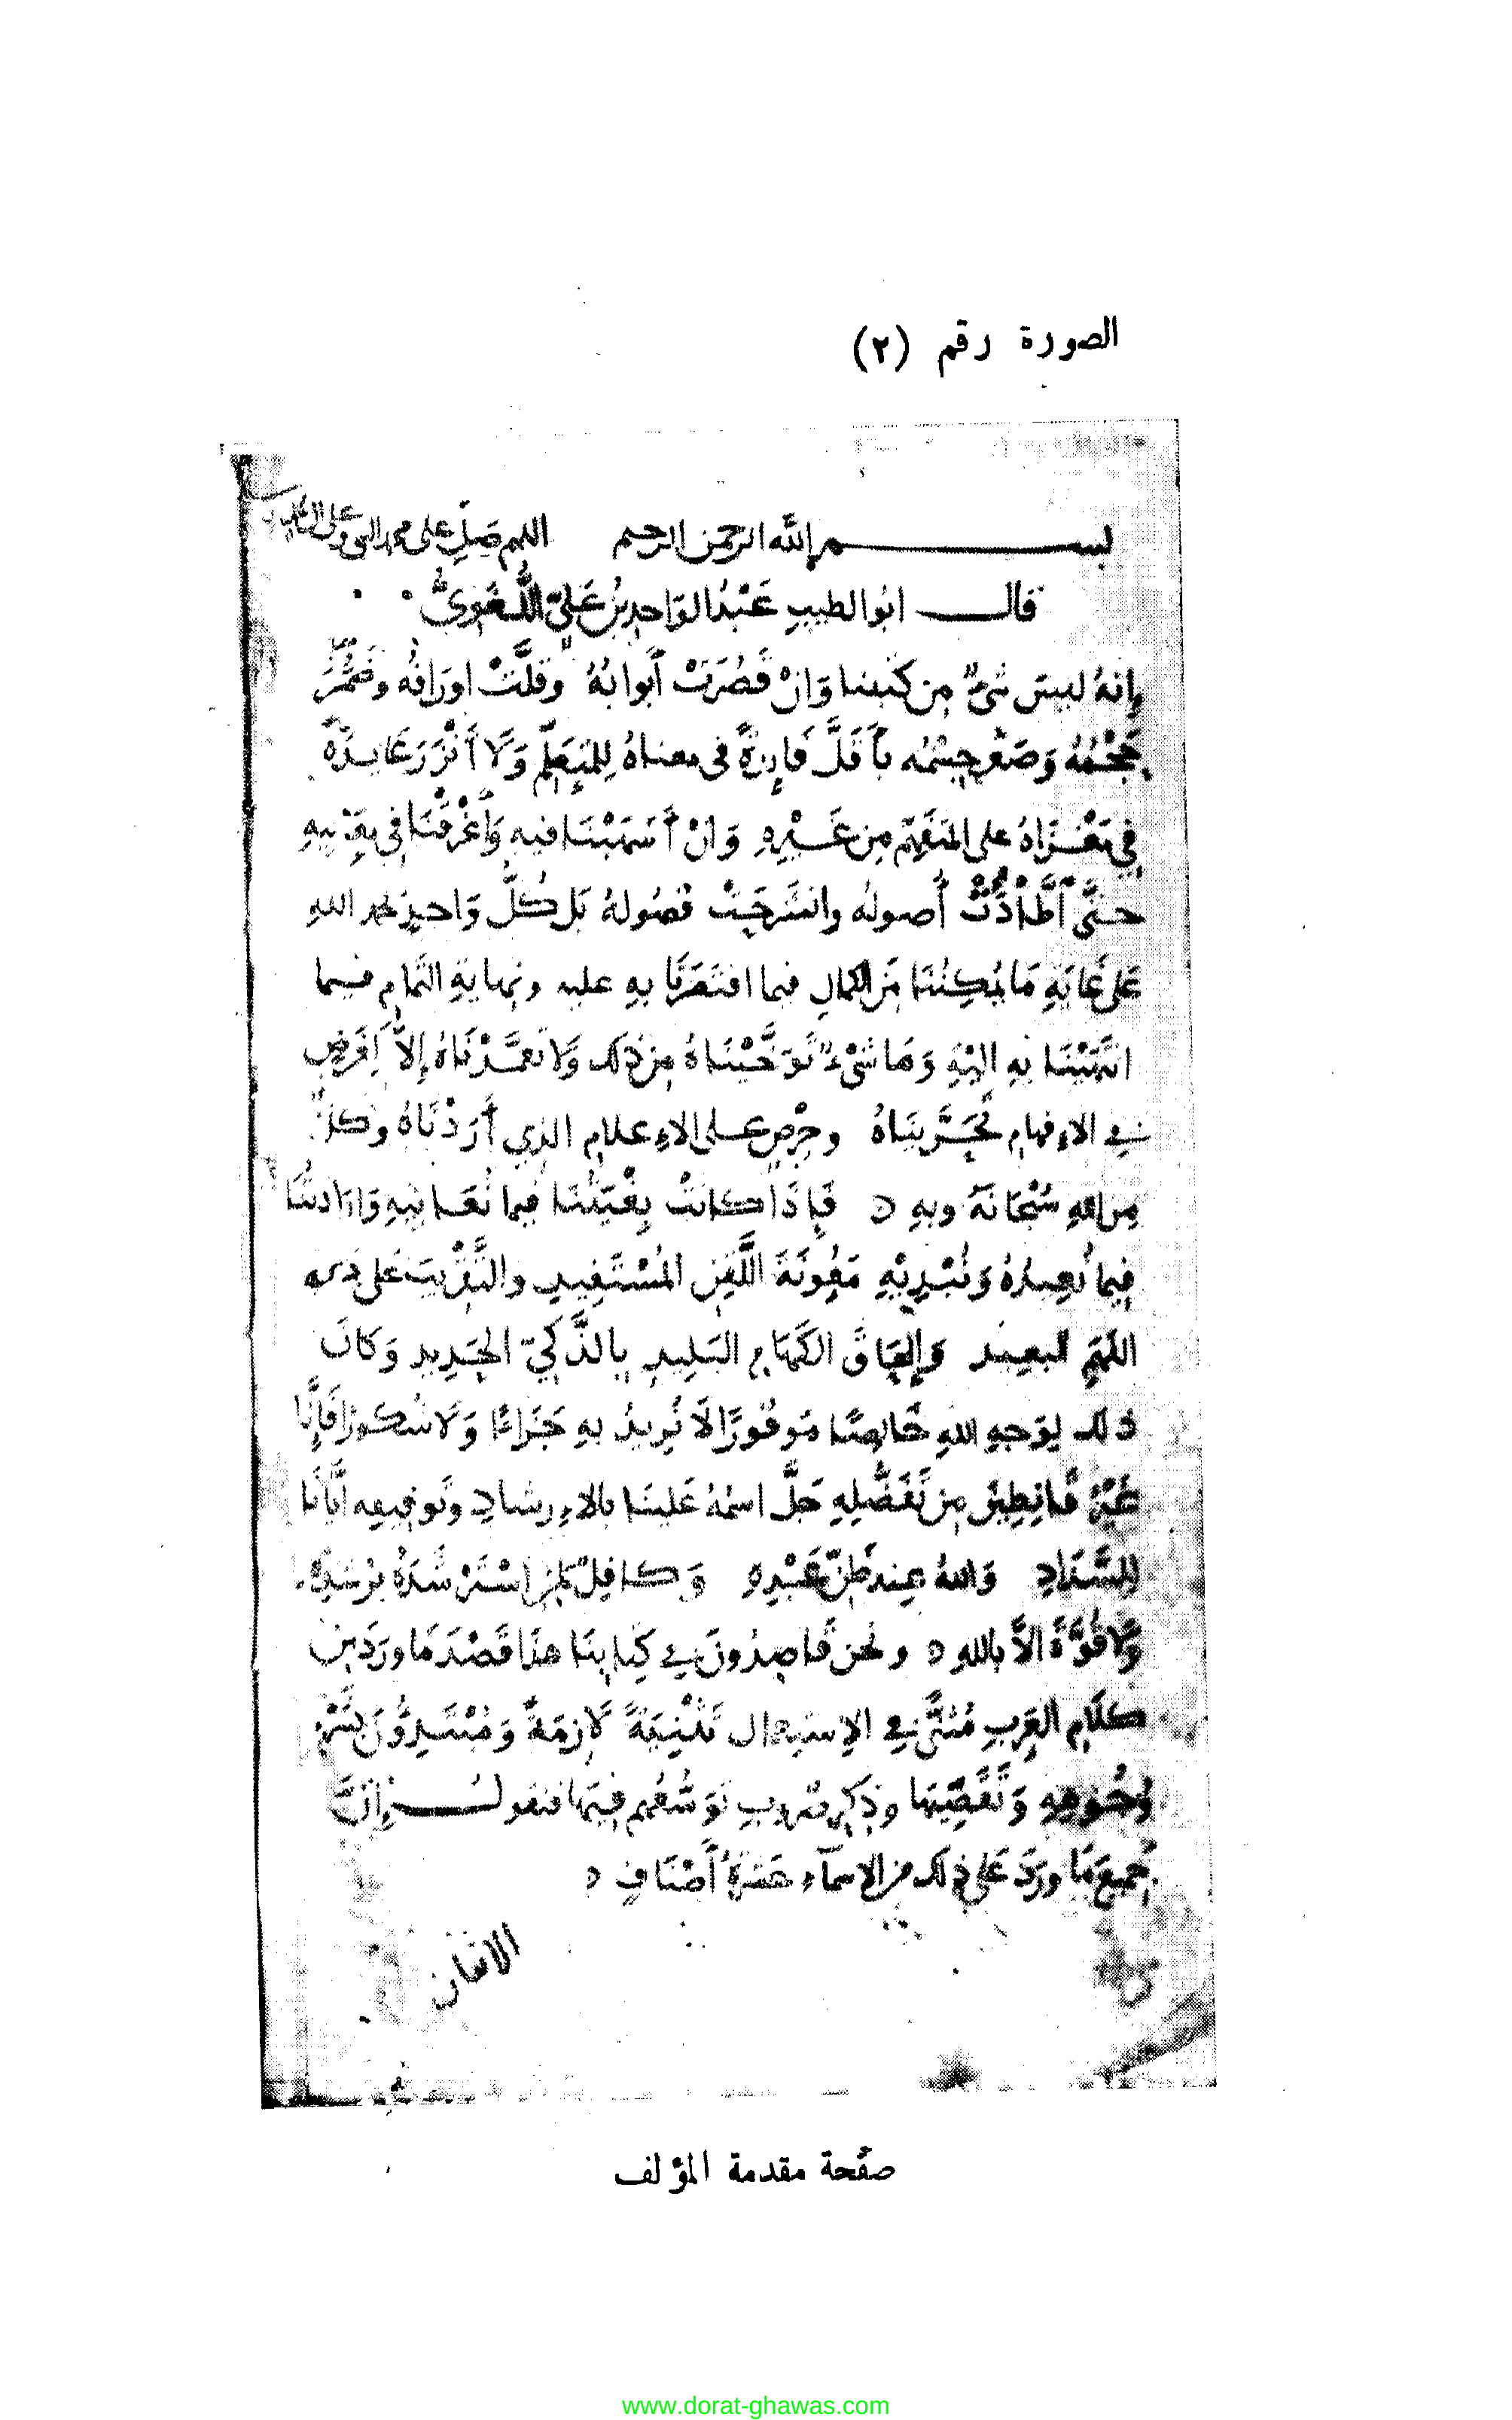 الصورة رقم (٢)
بسم الله الرحمن الرحيم اللهم صل على محمد النبي وعلى
قال ابوالطيب عَبْدُ الوَاحِدِ بنُ عَلِيّ اللُّغَوِيُّ
إنهُ ليسَ شيءٌ مِن كُتُبِنا وَانْ قَصُرَتْ أَبوابُهُ وقلَّتْ اورَاقُه وضَمُرَ
حَجْمُهُ وَصَغُرَ جِسْمُه بأَقَلَّ فَايِدَةً في معناهُ لِلمُتَعَلِّمِ وَلَا أَنْزَرَ عَايِدَةً
فِي مَغْزَاهُ على المُتَفَهِّمِ مِن غَيْرِهِ وَانْ أَسْهَبْنَا فيهِ وَأَغْرَقْنَا في
حتَّى أصولُه وانشَرَحَتْ فصُولهُ بَل كُلُّ وَاحِدٍ بحمد اللهِ
عَلى غَايَةِ مَا يُمكِنُنَا مِنَ الكمالِ فيما اقتَصَرنَا بهِ عليه ونهايةِ التَّمامِ فيما
انتَهَيْنَا بهِ اليْهِ وَمَا شَيْءٌ تَوَخَّيْنَاهُ مِن ذلك وَلَا تعَمَّدْنَاهُ إلاَّ لِغَرَضٍ
في الاءِفهامِ تَحَرَّيناهُ وحِرْصٍ على الاءِعلامِ الذِي أَرَدْنَاهُ وكلٌّ
مِنَ اللهِ سُبْحَانَهُ وبهِ فَإِذَا كانتْ بِغْيَتُنَا فيما نُعَانِيهِ وَارَادتُنَا
فِيما نُعِيدُهُ وَنُبْدِيْهِ مَعُونَةَ اللَّقِنِ المُسْتَفِيدِ والتَّقْرِيبَ عَلى ذِي
الفَهمِ البعيد وَإلحَاقَ الكَهَامِ البَليدِ بِالذَّكيِّ الحَدِيدِ وَكَانَ
ذلك لِوَجهِ اللهِ خَالِصًا مَوفُورًا لَا نُرِيدُ بهِ جَزَاءً وَلَا شُكورًا فَإِنَّا
غَيْرُ قَانِطِينَ مِن تَفَضُّلِهِ جَلَّ اسمُهُ عَلينَا بالاءِرشادِ وتَوفِيقِه ايَّانَا
لِلسَّدَادِ وَاللهُ عِند ظَنِّ عَبْدِهِ وَكافِلٌ لِمَنِ اسْتَرْشَدَهُ بِرُشدِهِ
وَلَا قُوَّةَ الاَّ باللهِ ونحنُ قَاصِدُونَ في كِتابِنَا هذَا قَصْدَ مَا ورَدَ مِن
كلَامِ العَرَبِ مُثَنًّى في الاستِعمالِ تَثْنِيَةً لَازِمَةً وَمُبْتَدِؤُنَ بِشَرْحِ
وُجُوهِهِ وَتَقَصِّيهَا وَذِكرِ ضُرُوبِ تَوَسُّعِهِم فِيهَا فنقولُ إِنَّ
جميعَ مَا ورَدَ عَلى ذلك من الاسمآءِ عَشَرَةُ أَصْنَافٍ
الاثنان
صفحة مقدمة المؤلف
www.dorat-ghawas.com